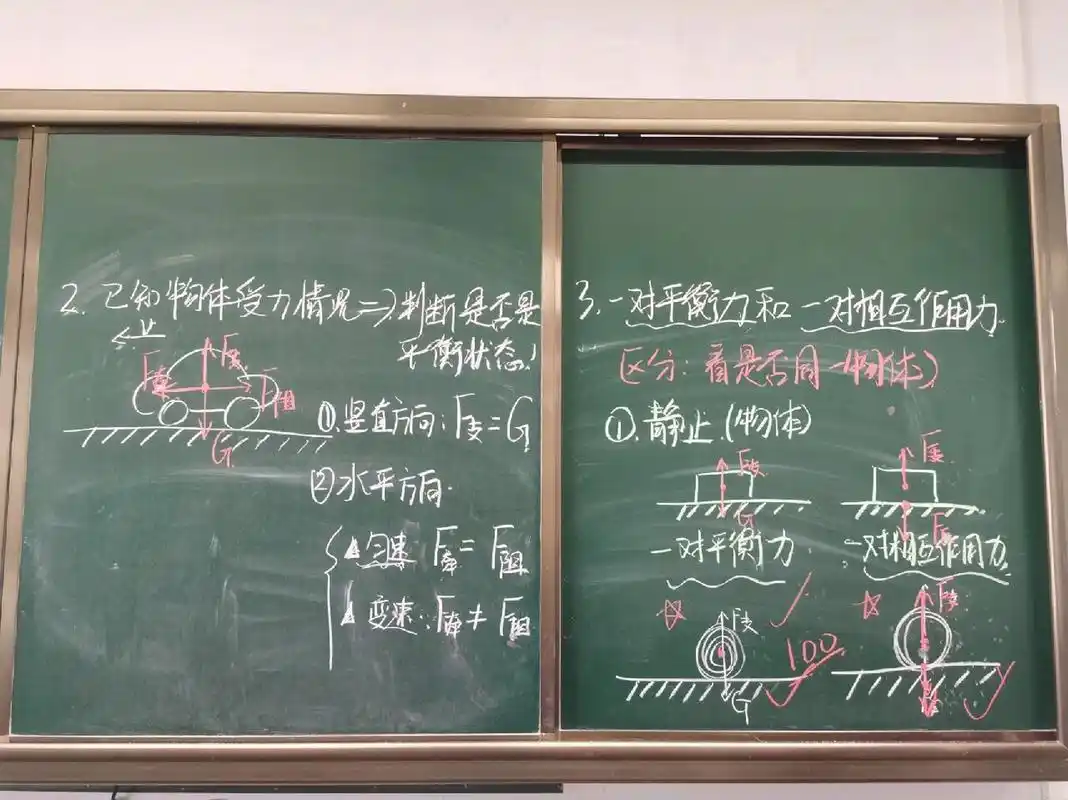 2. 已知物体受力情况⇒判断是否是
平衡状态!
←V
F支
F牵
F阻
G
①.竖直方向:F支=G
②水平方向.
▲匀速 F牵= F阻
▲变速:F牵≠ F阻
3.一对平衡力和 一对相互作用力.
(区分:看是否同一物体)
①.静止.(物体)
F支
G
F支
一对平衡力
一对相互作用力.
F支
G
100
F支